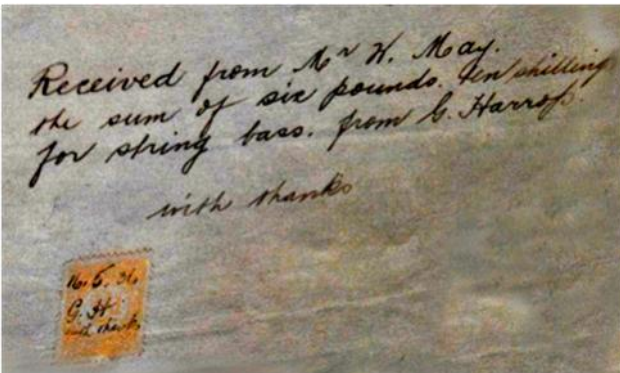 Received from Mr W. May.
the sum of six pounds. ten shilling
for string bass. from G. Harrop.
with thanks
G. H.
with thanks